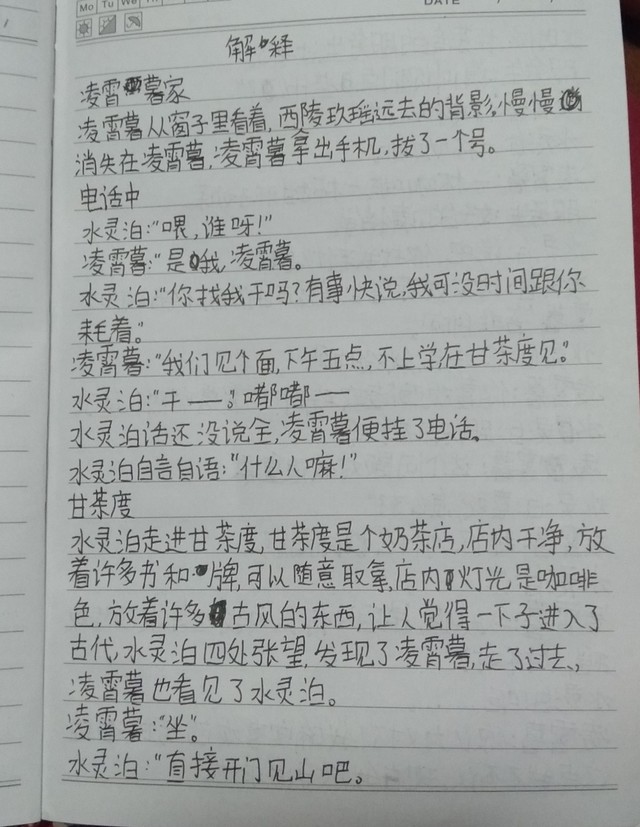 Mo Tu We Th
DATE
解释
凌霄薯家
凌霄薯从窗子里看着,西陵玖瑶远去的背影,慢慢
消失在凌霄薯,凌霄薯拿出手机,拔了一个号。
电话中
水灵泊:"喂,谁呀!"
凌霄薯:"是我,凌霄薯。
水灵泊:"你找我干吗?有事快说,我可没时间跟你
耗着。"
凌霄薯:"我们见个面,下午五点,不上学,在甘茶度见。"
水灵泊:"干——;嘟嘟——
水灵泊话还没说全,凌霄薯便挂了电话。
水灵泊自言自语:"什么人嘛!"
甘茶度
水灵泊走进甘茶度,甘茶度是个奶茶店,店内干净,放
着许多书和牌,可以随意取拿,店内灯光是咖啡
色,放着许多古风的东西,让人觉得一下子进入了
古代,水灵泊四处张望,发现了凌霄薯,走了过去,
凌霄薯也看见了水灵泊。
凌霄薯:"坐"。
水灵泊:"直接开门见山吧。